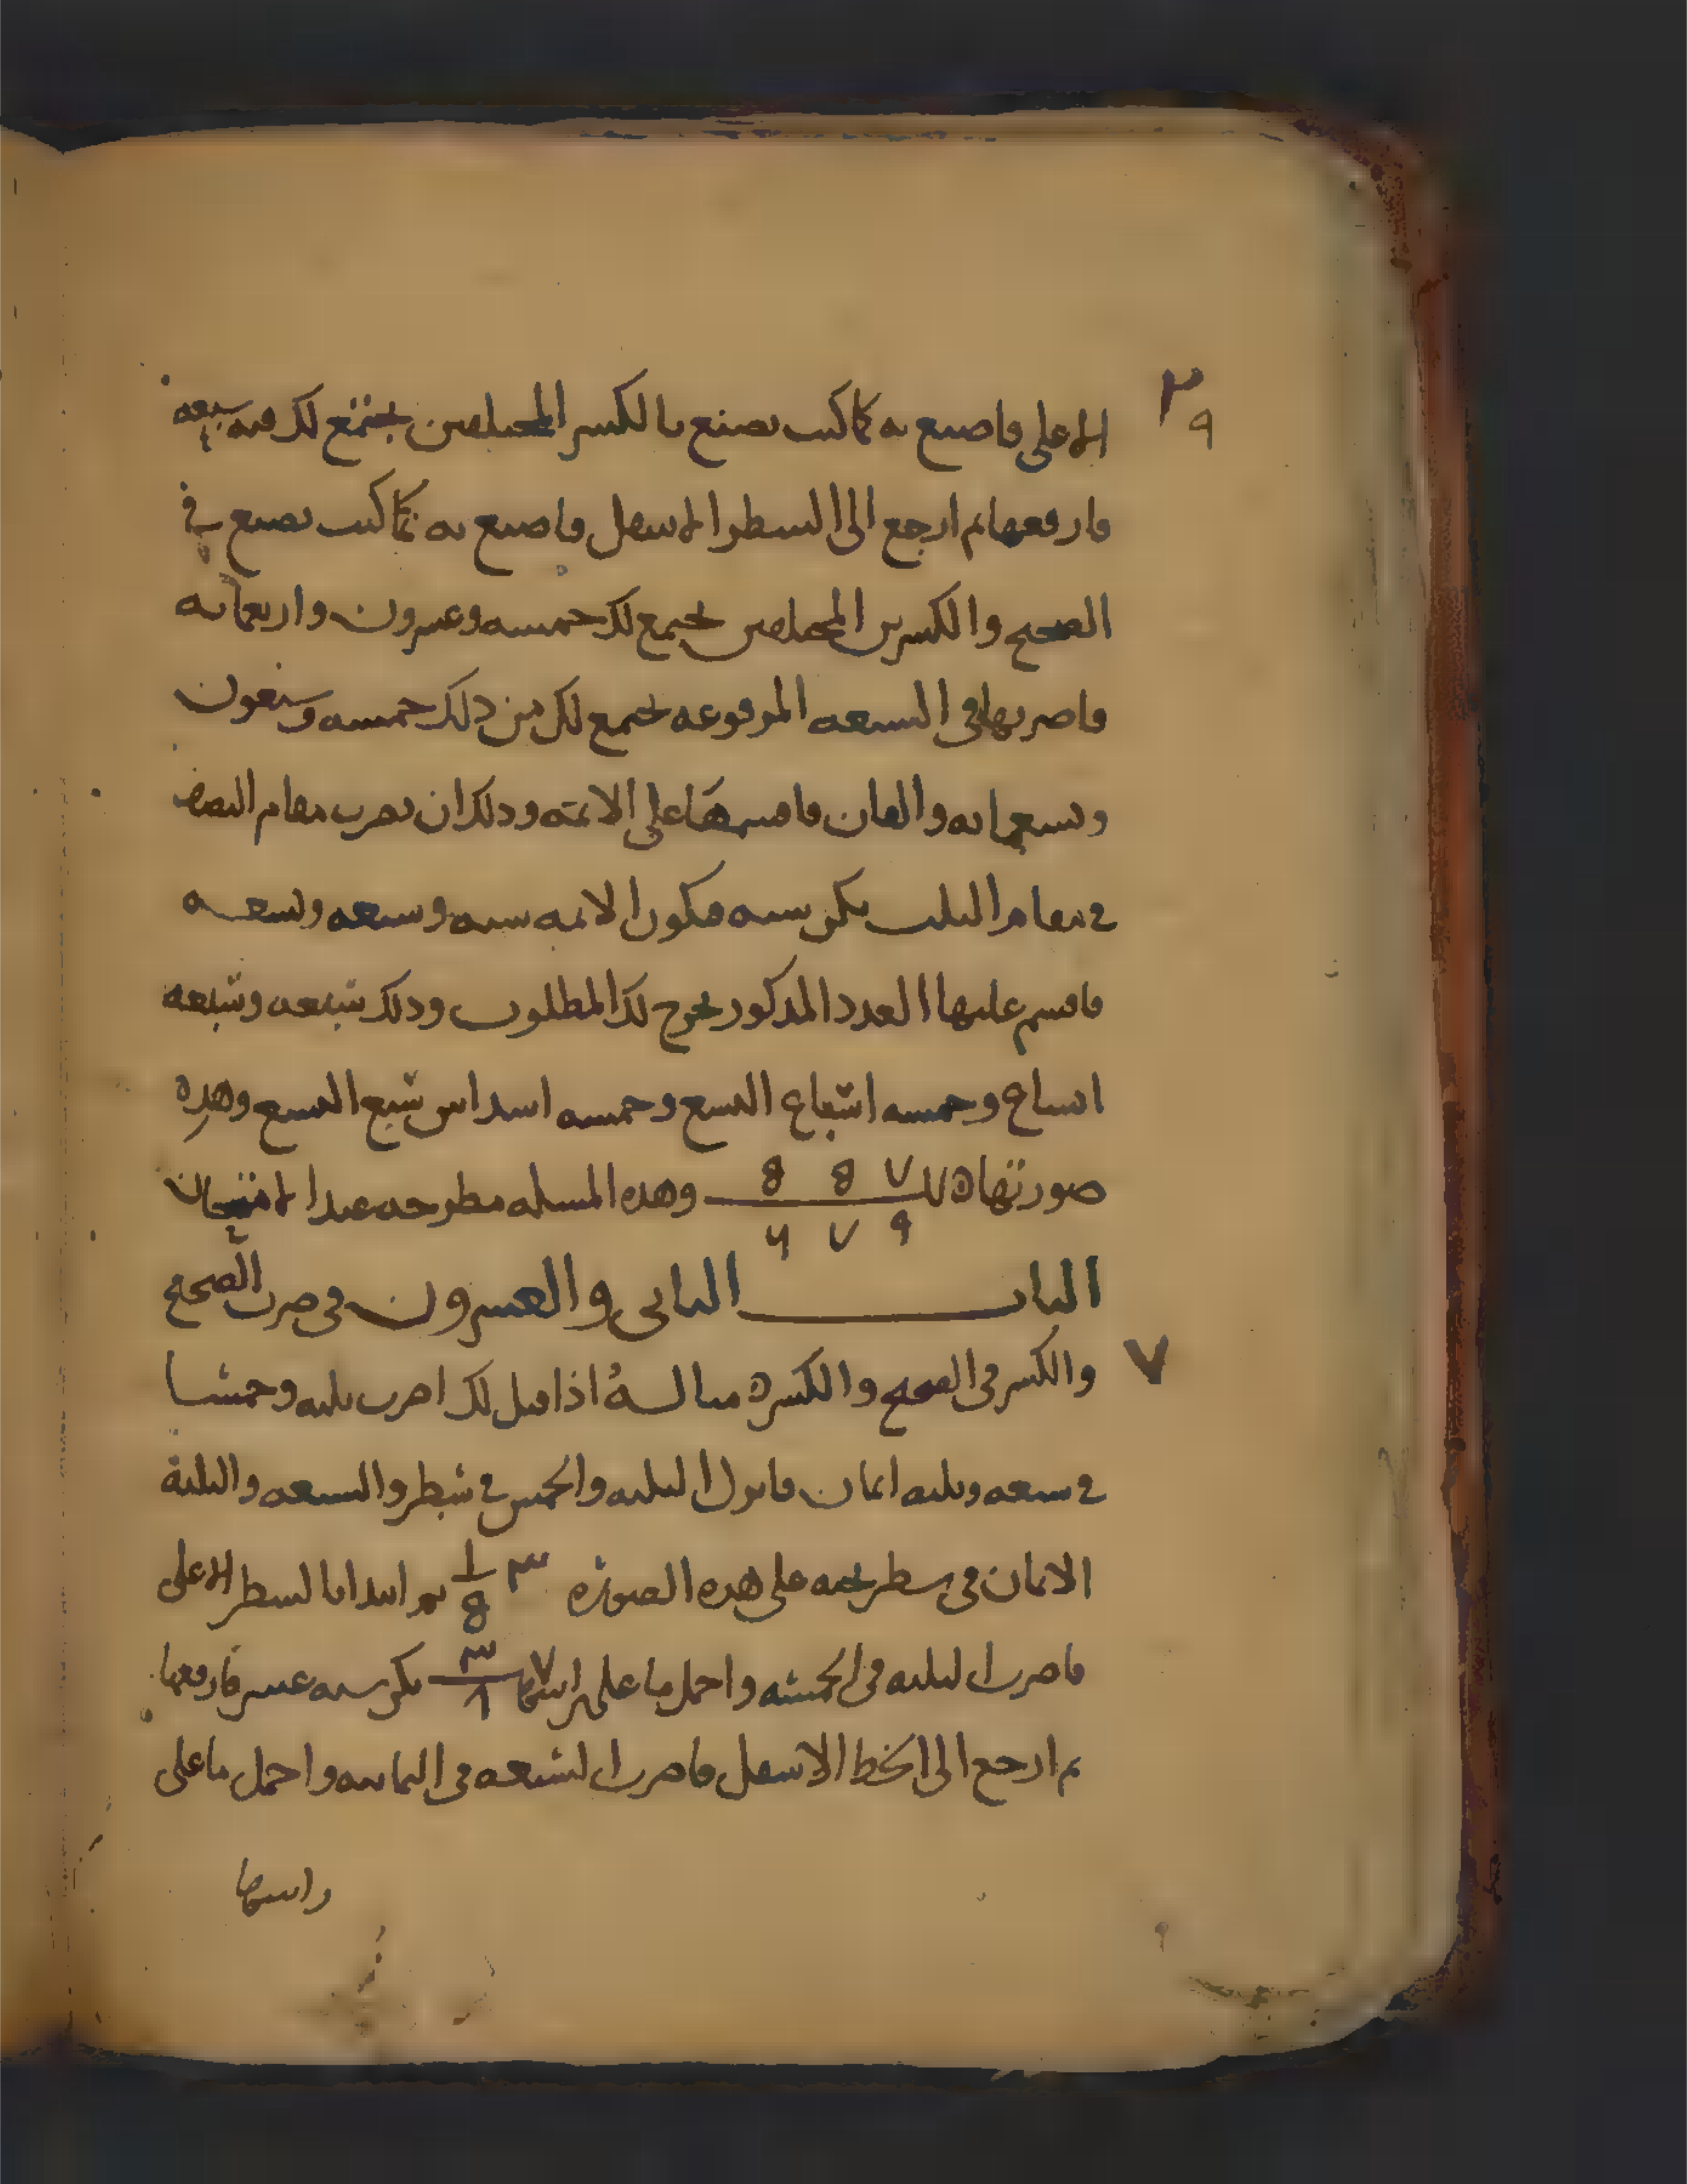 ٣٩
الاعلى فاصنع به كما كنت تصنع بالكسر المختلفين يجتمع لك فيه سبعه
فارفعها ثم ارجع الى السطر الاسفل فاصنع به كما كنت تصنع في
الصحيح والكسرين المختلفين يجتمع لك خمسه وعشرون واربعمائه
فاضربها في السبعه المرفوعه يجتمع لك من ذلك خمسه وسبعون
وتسعمائه والفان فاقسمها على الائمه وذلك ان تضرب مقام النصف
في مقام الثلث يكن سته فتكون الائمه سته وسبعه وتسعه
فاقسم عليها العدد المذكور يخرج لك المطلوب وذلك سبعه وسبعه
اتساع وخمسه اسباع التسع وخمسه اسداس سبع التسع وهذه
صورتها ٥ ٧ ٧ 8 8 وهذه المسله مطروحه عند الامتحان
٩ ٧ ٦
البـاب الثاني والعشرون في ضرب الصحيح
٧
والكسر في الصحيح والكسر ٥ مثالـهُ اذا قيل لك اضرب ثلثه وخمسا
في سبعه وثلثه اثمان فانزل الثلثه والخمس في سطر والسبعه والثلثة
الاثمان في سطر تحته على هذه الصورة ٣ ١/8 ثم ابدا بالسطر الاعلى
فاضرب الثلثه في الخمسه واحمل ما على راسها ٧ ٣/٨ يكن سته عشر فارفعها
ثم ارجع الى الخط الاسفل فاضرب السبعه في الثمانيه واحمل ما على
راسها